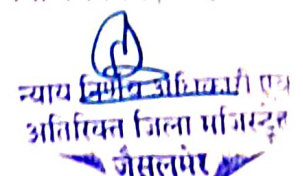 न्याय निर्णयन अधिकारी एवं
अतिरिक्त जिला मजिस्ट्रेट
जैसलमेर